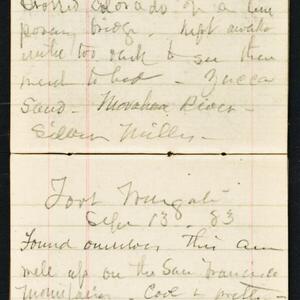 Crossed Colorado on a tem
porary bridge. Kept awake
until too dark to see then
went to bed - Yucca
Sand - Mohave River -
Fort Wingate
Sept 13 83
Found ourselves this am
well up on the San Francisco
Mountains. Cool &